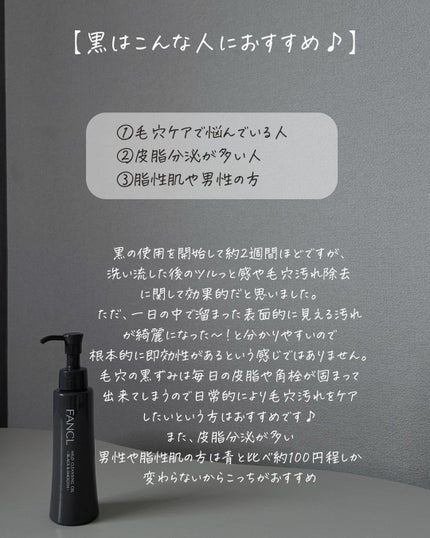 【黒はこんな人におすすめ♪】
①毛穴ケアで悩んでいる人
②皮脂分泌が多い人
③脂性肌や男性の方
黒の使用を開始して約2週間ほどですが、
洗い流した後のツルっと感や毛穴汚れ除去
に関して効果的だと思いました。
ただ、一日の中で溜まった表面的に見える汚れ
が綺麗になった〜！と分かりやすいので
根本的に即効性があるという感じではありません。
毛穴の黒ずみは毎日の皮脂や角栓が固まって
出来てしまうので日常的により毛穴汚れをケア
したいという方はおすすめです♪
また、皮脂分泌が多い
男性や脂性肌の方は青と比べ約100円程しか
変わらないからこっちがおすすめ
FANCL
MILD CLEANSING OIL
-BLACK&SMOOTH-